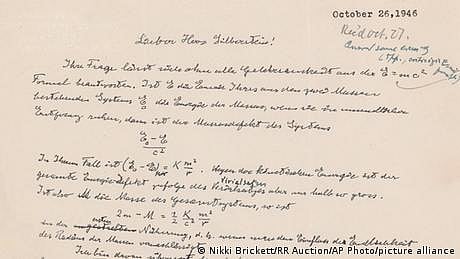 October 26, 1946
Lieber Herr Silberstein!
Reid oct. 27.
Ihre Frage lässt sich ohne alle Gelehrsamkeit aus der E = mc²
Formel beantworten. Ist E die Energie Ihres aus den zwei Massen
bestehenden Systems E₀ die Energie der Massen, wenn sie in unendlicher
Entfernung ruhen, dann ist der Massendefekt des Systems
E₀ - E
c²
In Ihrem Fall ist (E₀ - E) = K m²/r. Wegen der kinetischen Energie ist der
gesamte Energie-Defekt infolge des Virialsatzes aber nur halb so gross.
Ist also M die Masse des Gesamtsystems, so ist
2m - M = 1/2 K/c² m²/r
in der ersten Näherung, d. h. wenn man den Einfluss der Endlichkeit
des Radius der Massen vernachlässigt
© Nikki Brickett/RR Auction/AP Photo/picture alliance